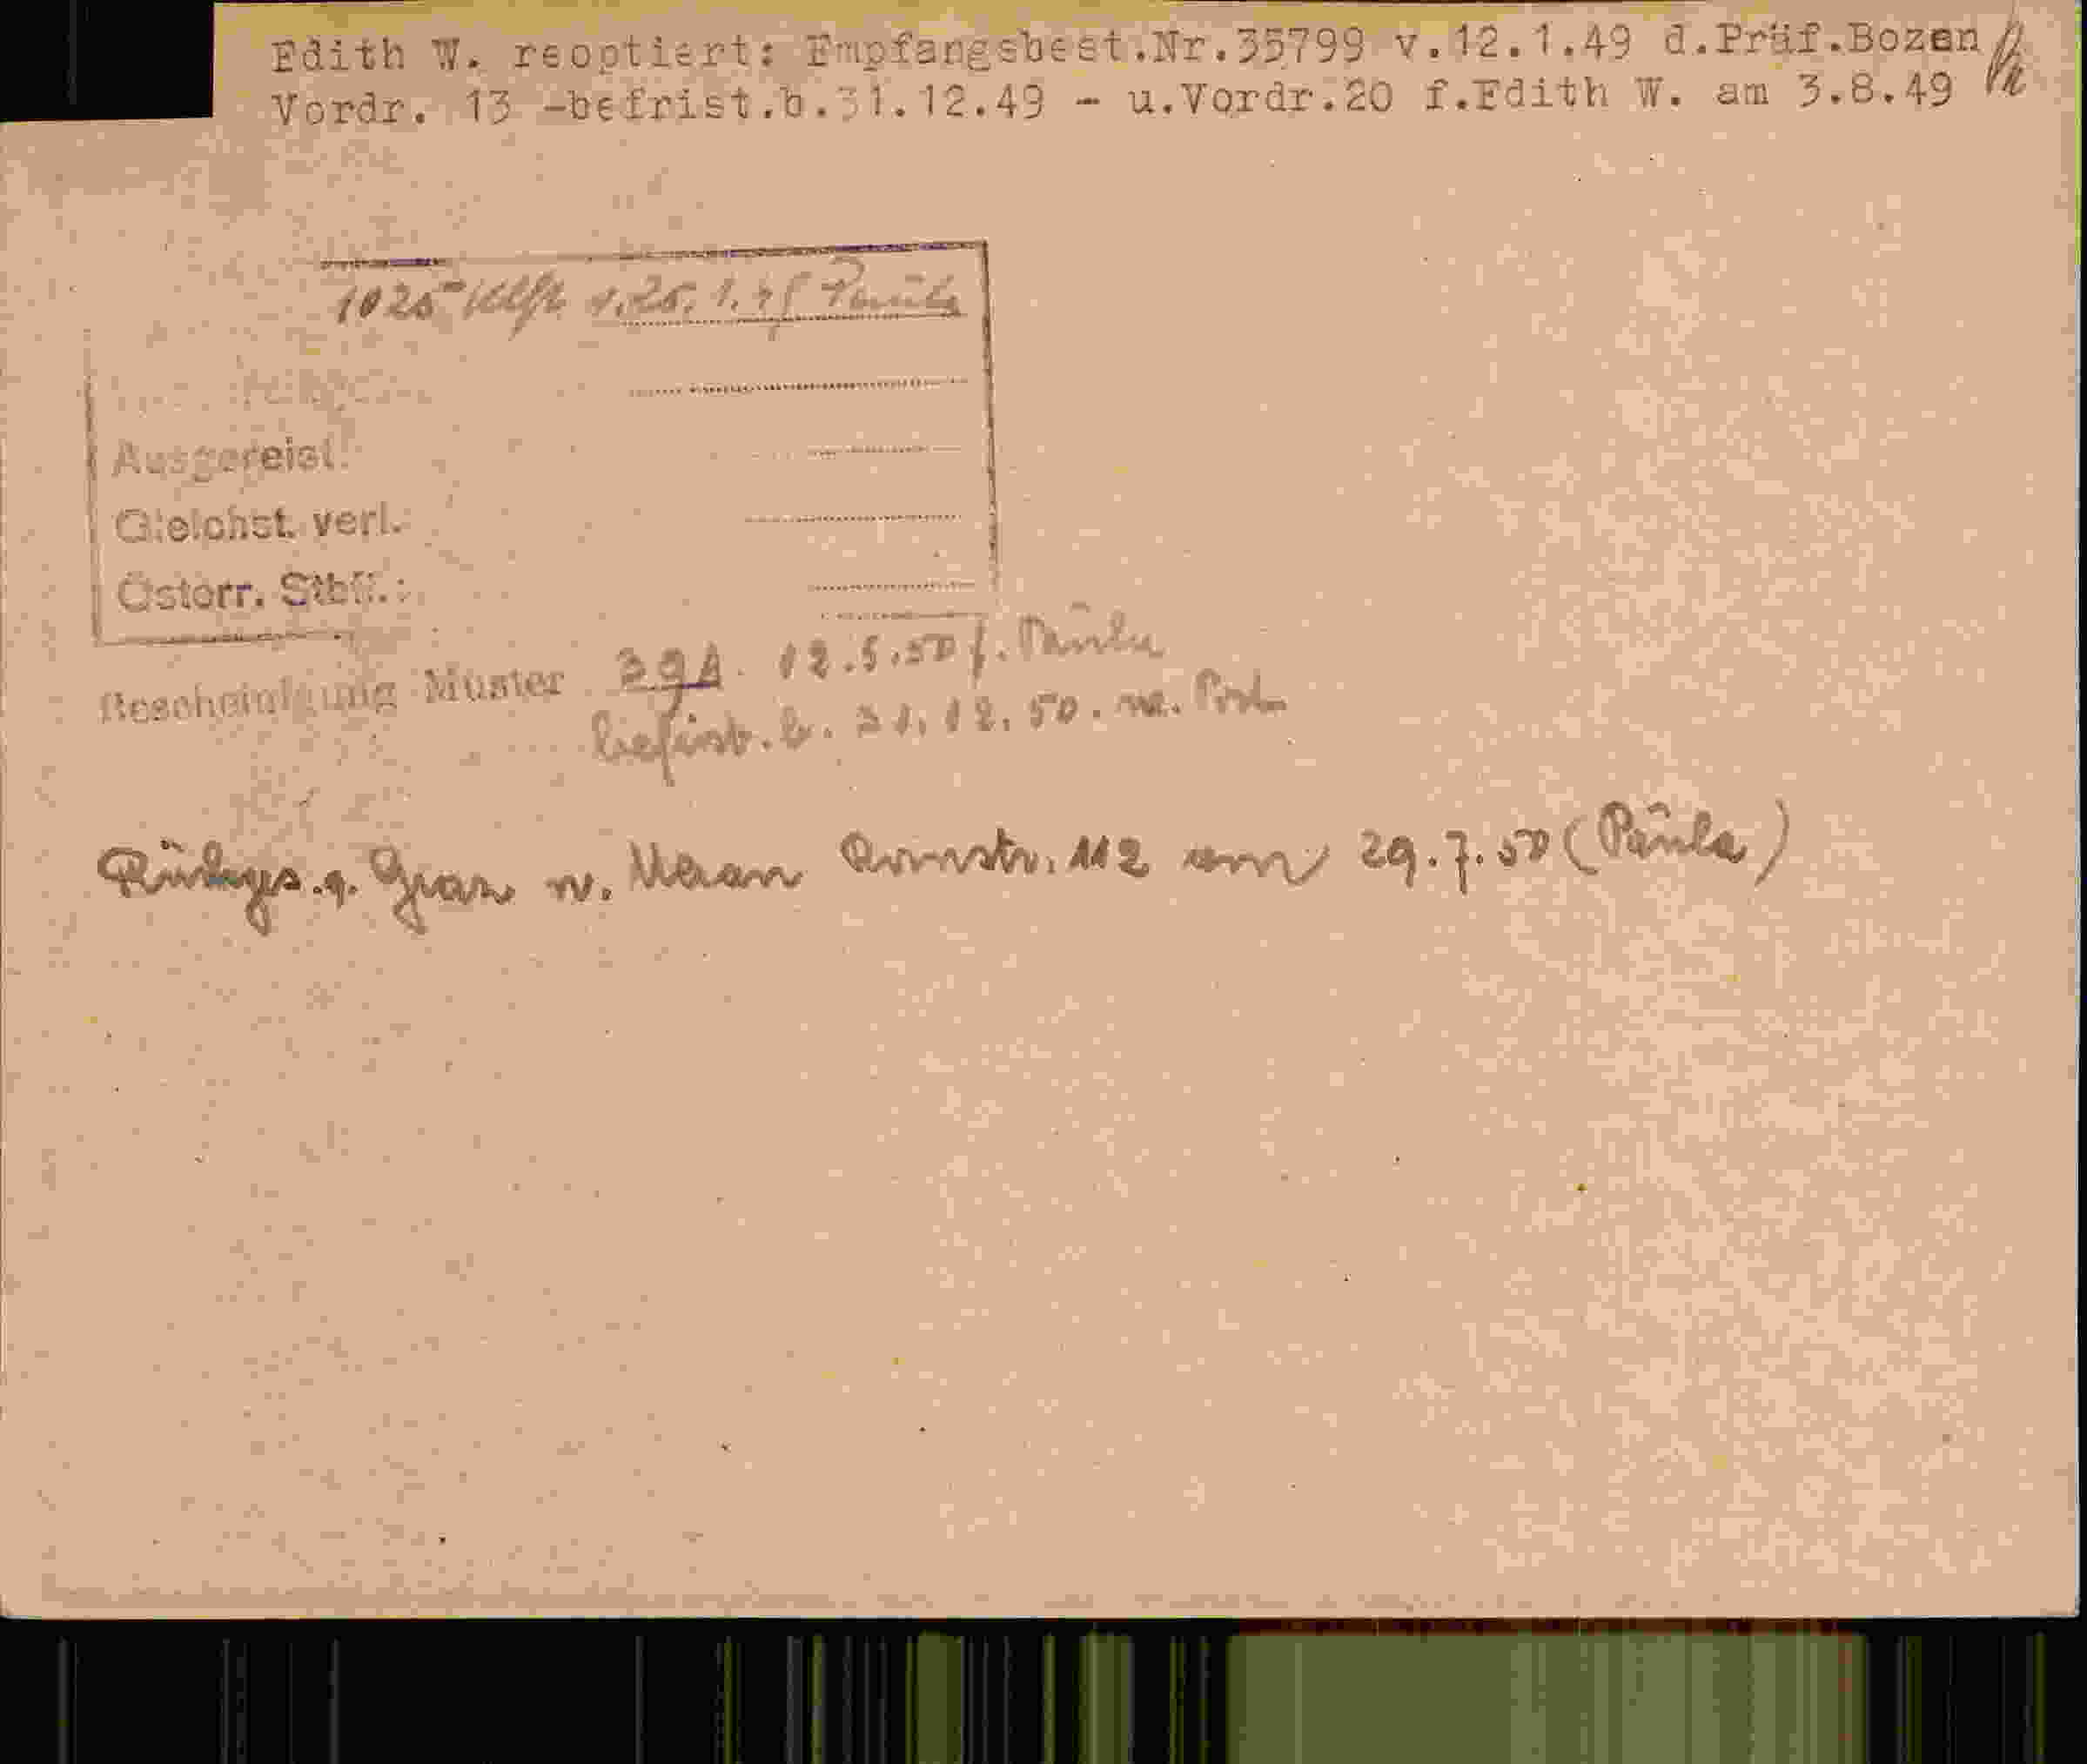 Edith W. reoptiert: Empfangsbest.Nr.35799 v.12.1.49 d.Präf.Bozen
Vordr. 13 -befrist.b.31.12.49 - u.Vordr.20 f.Edith W. am 3.8.49
1025 25.1.49 Paula
Ausgereist:
Gleichst. verl.
Österr. Stbü.:
Bescheinigung Muster 39A. 12.5.50 f. Paula
befrist. b. 31.12.50. m. Post
Graz n. Meran Romstr. 112 am 29.7.50 (Paula)